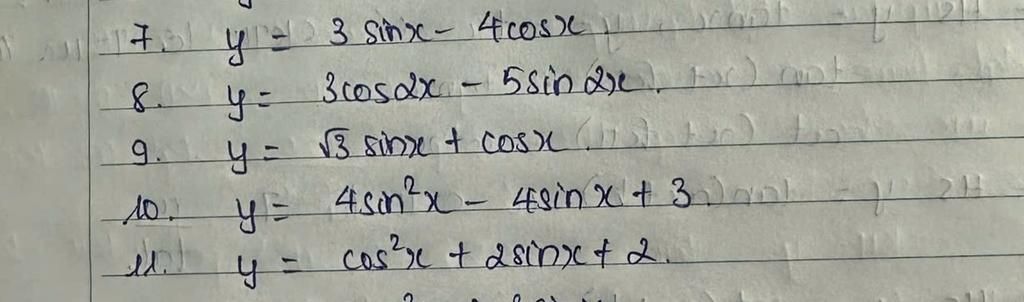 7. y = 3 sinx - 4cosx
8. y = 3cos2x - 5sin2x.
9. y = √3 sinx + cosx
10. y = 4sin²x - 4sinx + 3
11. y = cos²x + 2sinx + 2.